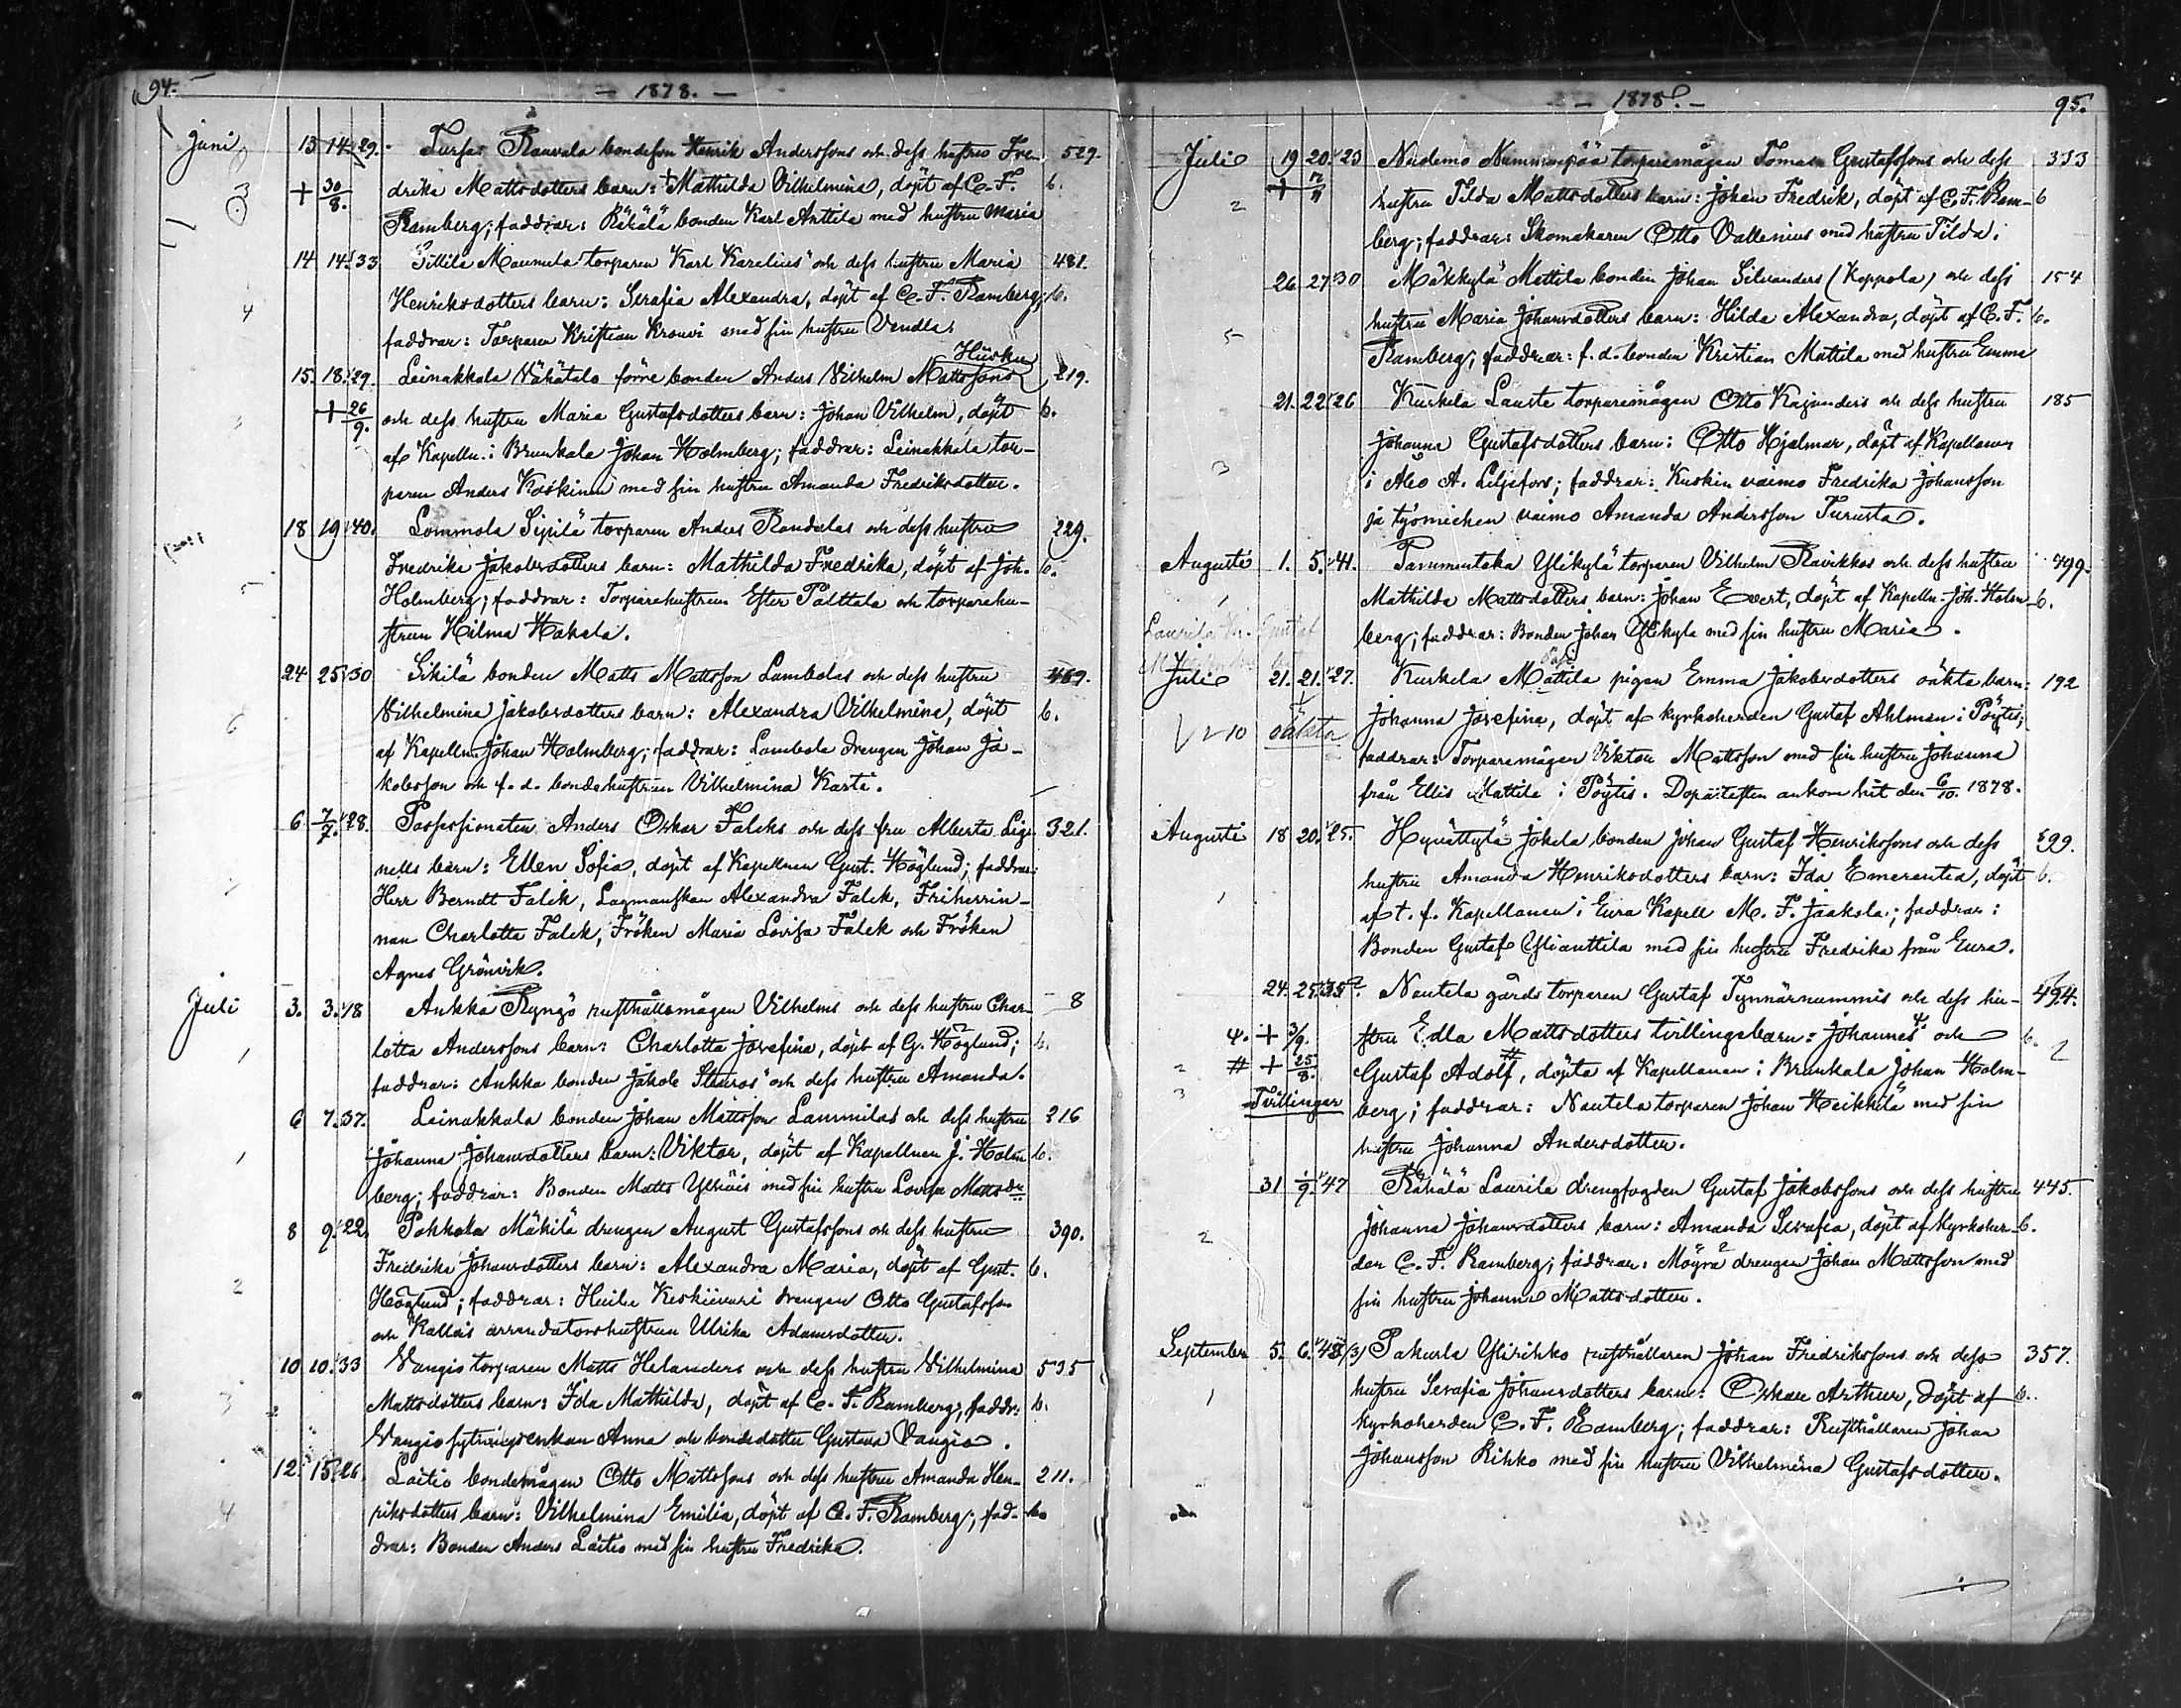 94.
— 1878. —
Juni 13 14 29. Turhas Rauvala bondeson Henrik Anderssons och dess hustru Fre- 529.
+ 30/8. drika Mattsdotters barn: + Mathilda Vilhelmina, döpt af C. F. b.
Ramberg; faddrar: Räkälä bonden Karl Anttila med hustru Maria
14 14. 33 Sillilä Maunula torparen Karl Karelius och dess hustru Maria 481.
4 Henriksdotters barn: Serafia Alexandra, döpt af C. F. Ramberg; b.
faddrar: Torparen Kristian Krouvi med sin hustru Vendla.
15. 18. 29. Leinakkala Vähätalo förre bonden Anders Vilhelm Mattssons 219.
+ 26/9. och dess hustru Maria Gustafsdotters barn: Johan Vilhelm, döpt b.
af Kapelln. i Brunkala Johan Holmberg; faddrar: Leinakkala tor-
paren Anders Koskinen med sin hustru Amanda Fredriksdotter.
18 19 40. Lommola Sipilä torparen Anders Randalas och dess hustru 229.
Fredrika Jakobsdotters barn: Mathilda Fredrika, döpt af Joh. b.
Holmberg; faddrar: Torparehustrun Ester Palttala och torparehu-
strun Hilma Hakala.
24 25 30 Sikilä bonden Matts Mattsson Lambolas och dess hustru 469.
6 Vilhelmina Jakobsdotters barn: Alexandra Vilhelmina, döpt b.
af Kapelln. Johan Holmberg; faddrar: Lambola drengen Johan Ja-
kobsson och f. d. bondehustrun Vilhelmina Karti.
6 7/7. 28. Possessionaten Anders Oskar Falcks och dess fru Alberta Lig- 321.
nells barn: Ellen Sofia, döpt af Kapellnen Gust. Höglund; faddrar:
Herr Berndt Falck, Lagmanskan Alexandra Falck, Friherrin-
nan Charlotta Falck, Fröken Maria Lovisa Falck och Fröken
Agnes Grönvik.
Juli 3. 3. 48 Ankka Ryngö rusthållsmågen Vilhelms och dess hustru Char- 8
1 lotta Anderssons barn: Charlotta Josefina, döpt af G. Höglund; b.
faddrar: Ankka bonden Jakob Stenros och dess hustru Amanda.
6 7. 37. Leinakkala bonden Johan Mattsson Lammilas och dess hustru 216
1 Johanna Johansdotters barn: Viktor, döpt af Kapellnen J. Holm b.
berg; faddrar: Bonden Matts Ylhäis med sin hustru Lovisa Mattsdr
8 9. 22. Pakkala Mäkilä drengen August Gustafssons och dess hustru 390.
Fredrika Johansdotters barn: Alexandra Maria, döpt af Gust. b.
2 Höglund; faddrar: Huilu Keskiivari drengen Otto Gustafsson
och Kallais arrendatorshustrun Ulrika Adamsdotter.
10 10. 33 Vangio torparen Matts Helanders och dess hustru Vilhelmina 535
3 Mattsdotters barn: Ida Mathilda, döpt af C. F. Ramberg; faddr: b.
Vangio enkan Anna och bondedotter Gustava Vangio.
12. 15. 26. Laitio bondemågen Otto Mattssons och dess hustru Amanda Hen- 211.
4 riksdotters barn: Vilhelmina Emilia, döpt af C. F. Ramberg; fad- b.
drar: Bonden Anders Laitio med sin hustru Fredrika.
— 1878. — 95.
Juli 19 20. 23 Nudemo Nummenpää torparemågen Tomas Gustafssons och dess 333
2 + hustru Tilda Mattsdotters barn: Johan Fredrik, döpt af C. F. Ram- b
berg; faddrar: Skomakaren Otto Vallenius med hustru Tilda.
26 27 30 Mäkkylä Mattila bonden Johan Silvanders (Koppola) och dess 154
5 hustru Maria Johansdotters barn: Hilda Alexandra, döpt af C. F. b.
Ramberg; faddrar: f. d. bonden Kristian Mattila med hustru Emma
21. 22 26 Kuskela Lauste torparemågen Otto Kajanders och dess hustru 185
Johanna Gustafsdotters barn: Otto Hjalmar, döpt af Kapellanen
3 i Åbo A. Liljefors; faddrar: Kuskin vaimo Fredrika Johansson
ja työmiehen vaimo Amanda Andersson Turusta.
Augusti 1. 5. 41. Tammentaka Ylikylä torparen Vilhelm Raikkas och dess hustru 499.
1 Mathilda Mattsdotters barn: Johan Evert, döpt af Kapelln. Joh. Holm- b.
berg; faddrar: Bonden Johan Ylikylä med sin hustru Maria.
Juli 21. 21. 27. Kuskela Mattila pigan Emma Jakobsdotters oäkta barn: 192
10 oäkta Johanna Josefina, döpt af kyrkoherden Gustaf Ahlman i Pöytis;
faddrar: Torparemågen Viktor Mattsson med sin hustru Johanna
från Ellis Mattila i Pöytis. Dopattesten ankom hit den 6/10. 1878.
Augusti 18 20. 25. Hyvättylä Jokela bonden Johan Gustaf Henrikssons och dess 599.
1 hustru Amanda Henriksdotters barn: Ida Emerentia, döpt b.
af t. f. Kapellanen i Eura Kapell M. F. Jaakola; faddrar:
Bonden Gustaf Ylianttila med sin hustru Fredrika från Eura.
24. 25. 35. Nautela gårds torparen Gustaf Tynnärnummis och dess hu- 494.
4. + 3/9. stru Edla Mattsdotters tvillingsbarn: Johannes och b.
2 # + 25/8. Gustaf Adolf #, döpta af Kapellanen i Brunkala Johan Holm-
3 Tvillingar berg; faddrar: Nautela torparen Johan Heikkilä med sin
hustru Johanna Andersdotter.
31 1/9. 47 Räkälä Laurila drengfogden Gustaf Jakobssons och dess hustru 445.
2 Johanna Johansdotters barn: Amanda Serafia, döpt af Kyrkoher- b.
den C. F. Ramberg; faddrar: Möyrä drengen Johan Mattsson med
sin hustru Johanna Mattsdotter.
September 5. 6. 48 (3) Pakurla Ylirihko rusthållaren Johan Fredrikssons och dess 357.
1 hustru Serafia Johansdotters barn: Oskar Arthur, döpt af b.
kyrkoherden C. F. Ramberg; faddrar: Rusthållaren Johan
Johansson Rihko med sin hustru Vilhelmina Gustafsdotter.